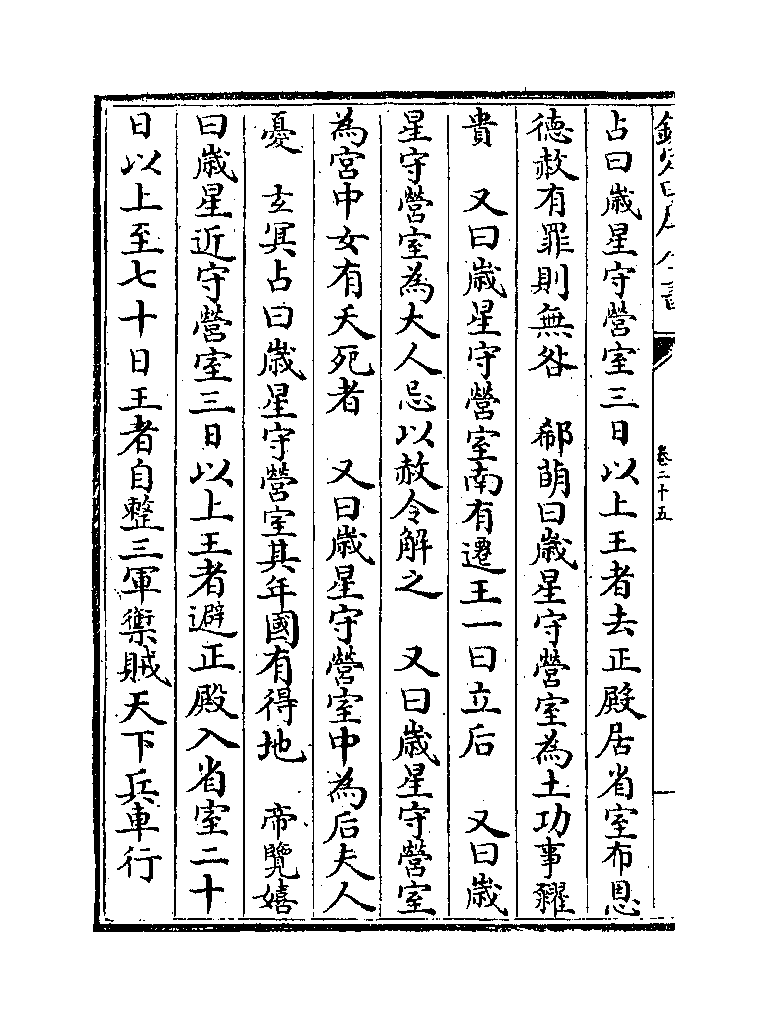 卷二十五
占曰歳星守營室三日以上王者去正殿居省室布恩
徳赦有罪則無咎　郗萌曰歳星守營室為土功事糴
貴　又曰歳星守營室南有遷王一曰立后　又曰歳
星守營室為大人忌以赦令解之　又曰歳星守營室
為宫中女有夭死者　又曰歳星守營室中為后夫人
憂　玄冥占曰歳星守營室其年國有得地　帝覽嬉
曰歳星近守營室三日以上王者避正殿入省室二十
日以上至七十日王者自整三軍禦賊天下兵車行